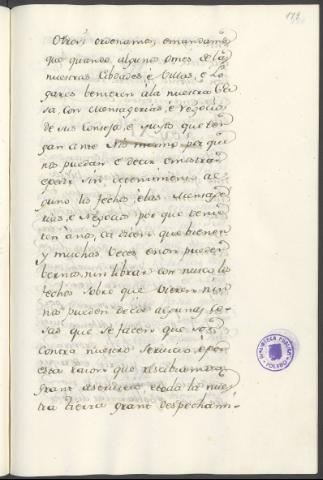 Otrosi ordenamos, e mandamos
que quando algunos omes de las
nuestras Cibdades, e Villas, e Lo
gares benieren a la nuestra Cor
sa, con mensagerias, e negocios
de sus Consejos e justo que ben
gan ante Nos mesmo por que
nos puedan e decir e mostrar
e pedir sin detenimiento al
guno los fechos, e las Mensage
rias, e Negocios por que benie
ron a nos, ca dicen que bienen
y muchas veces e non pueden
bernos, nin librar con nusco los
fechos sobre que vieren nin
nos pueden decir algunas co
sas que se facen que son
contra nuestro servicio, e por
esta razon que rescibiamos
grant deservicio, e toda la nues
tra tierra grant despechami-
BIBLIOTECA PUBLICA
TOLEDO